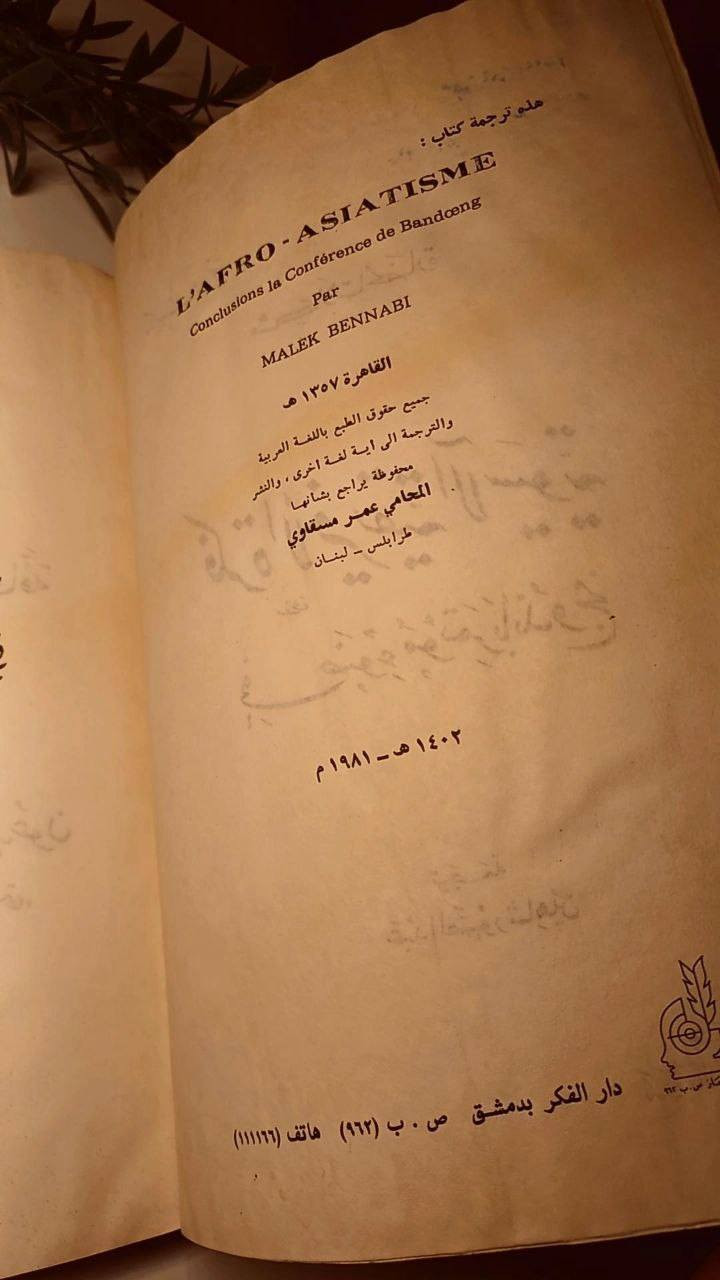 هذه ترجمة كتاب :
L'AFRO - ASIATISME
Conclusions la Conférence de Bandœng
Par
MALEK BENNABI
القاهرة ١٣٥٧ هـ
جميع حقوق الطبع باللغة العربية
والترجمة الى اية لغة اخرى ، والنشر
محفوظة يراجع بشانها
المحامي عمر مسقاوي
طرابلس ــ لبنان
١٤٠٢ هـ ــ ١٩٨١ م
ص.ب ٩٦٢
دار الفكر بدمشق ص . ب (٩٦٢) هاتف (١١١١٦٦)